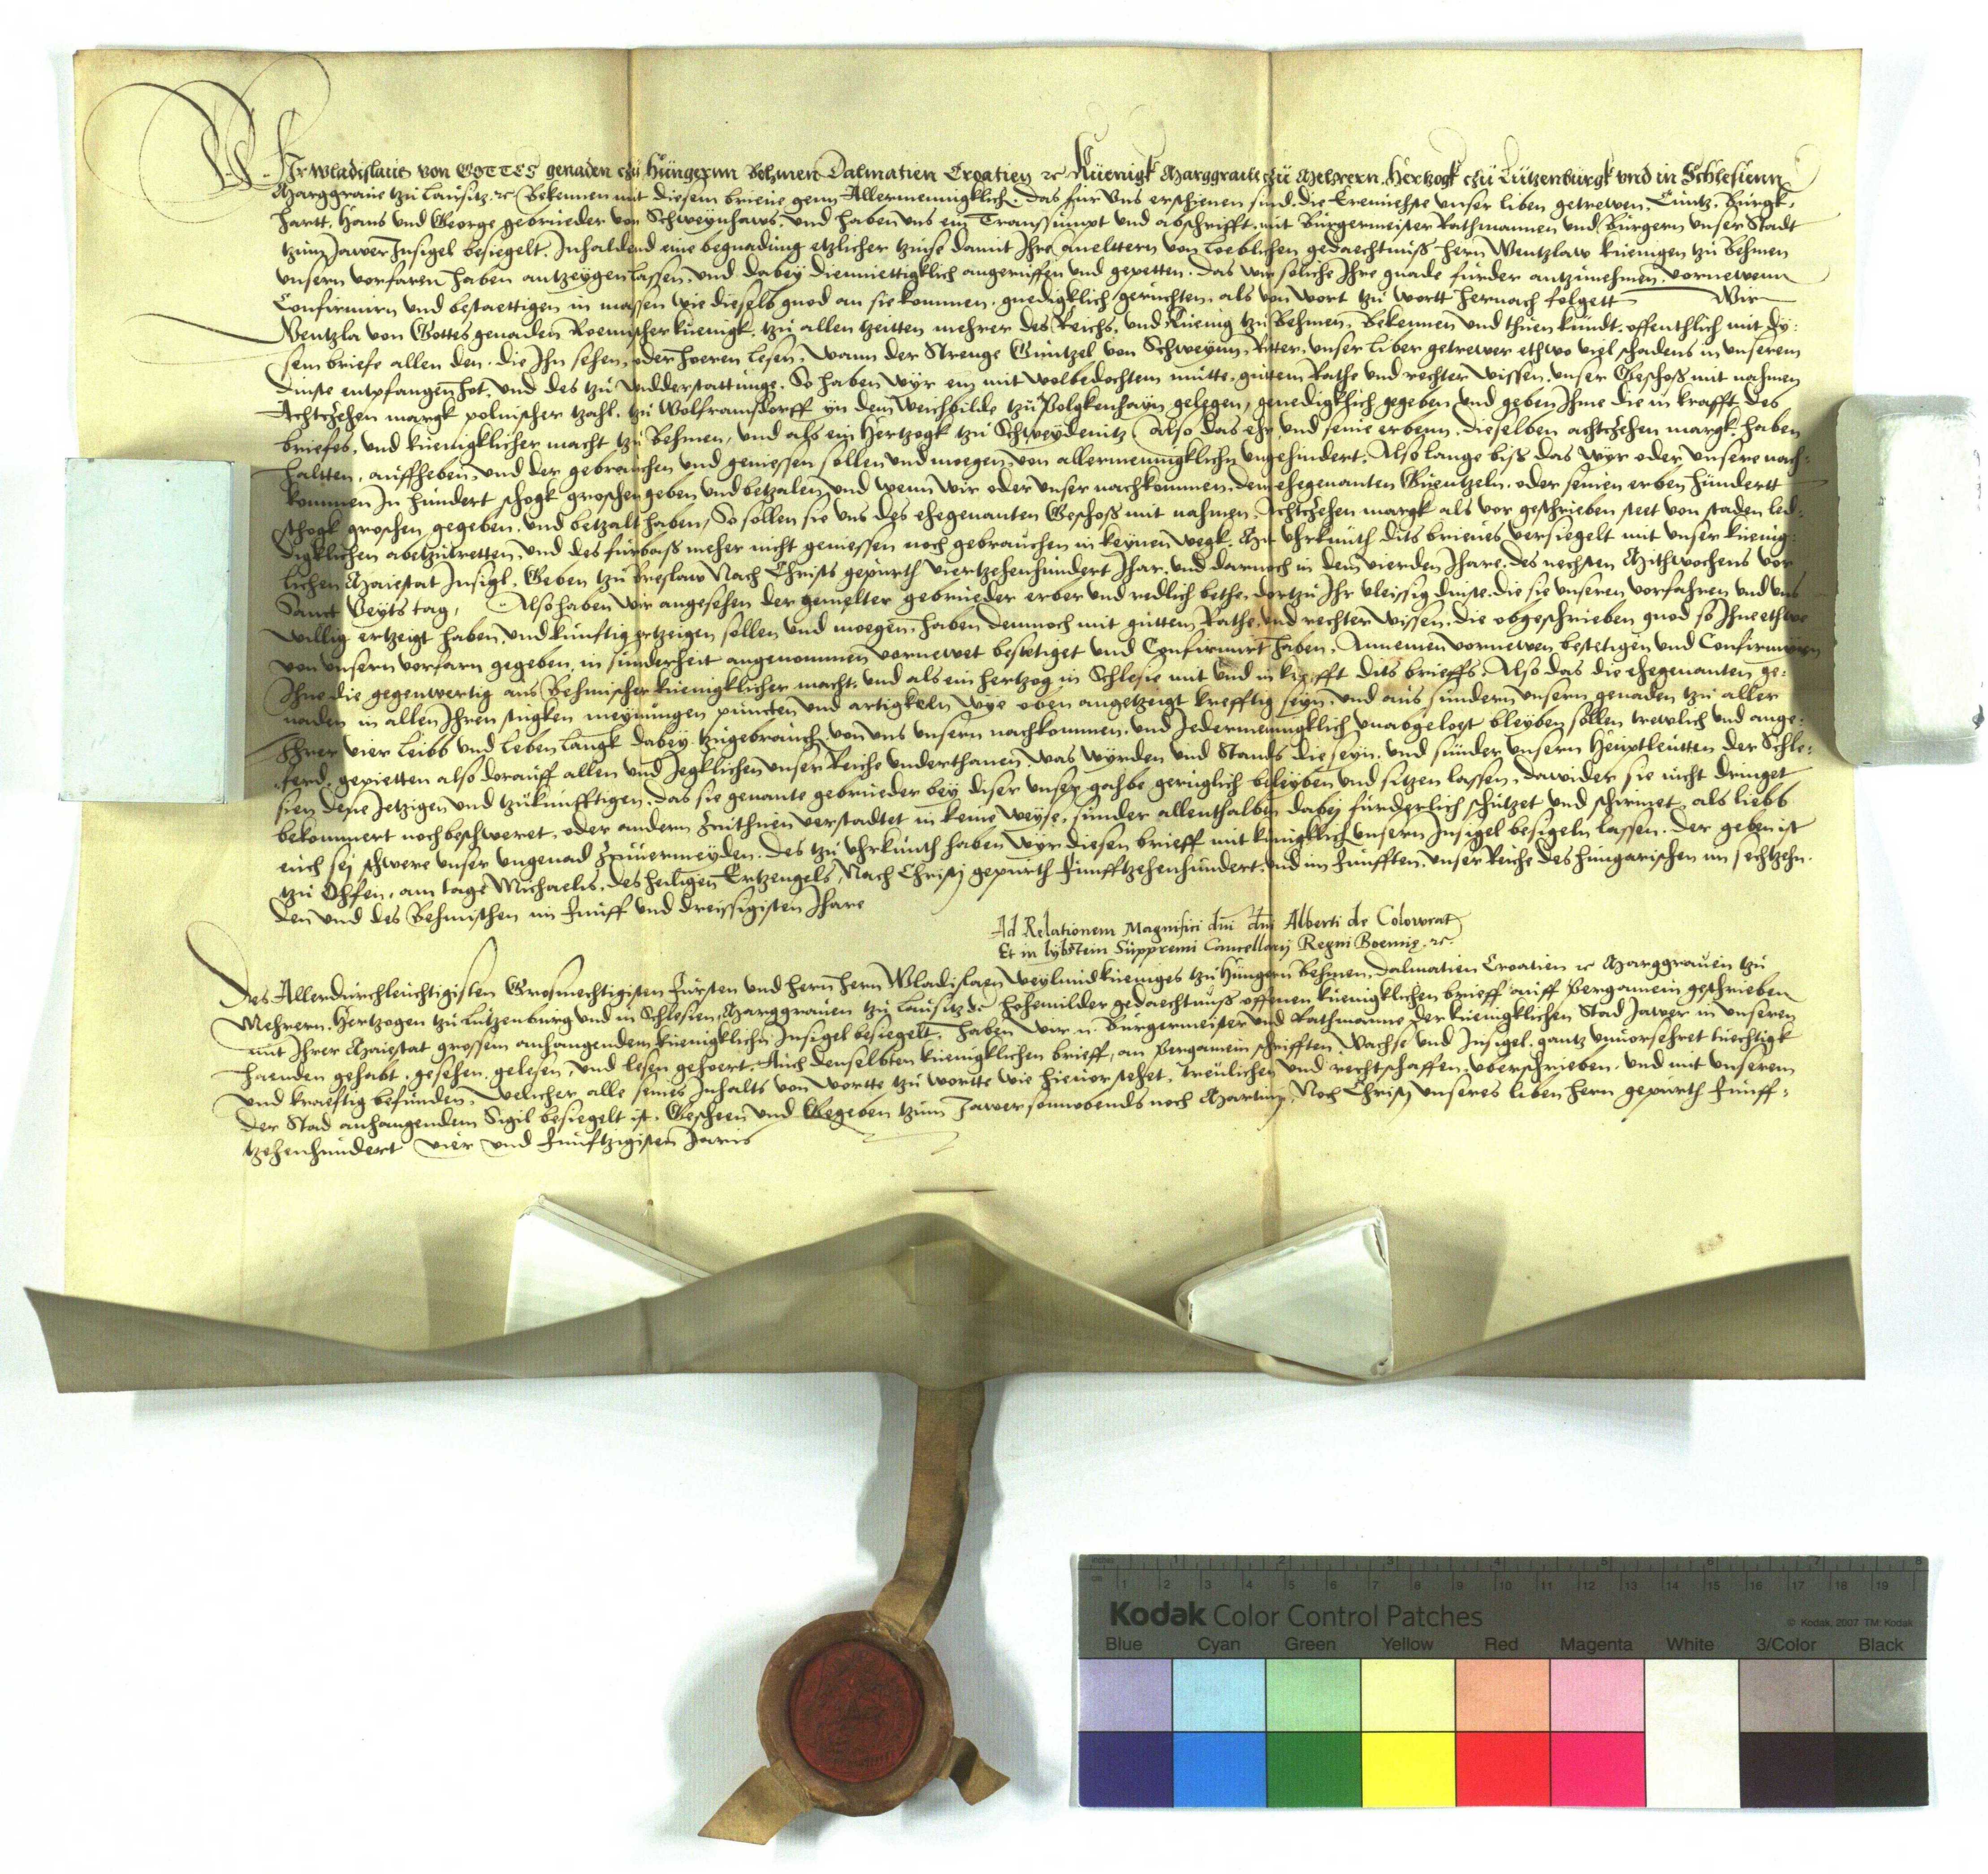 Wir Wladislaus von GOTTES genaden czu Hungernn Behmen Dalmatien Croatien ꝛc Kuenigk Marggraue czu Mehrern Hertzogk czu Lutzenburgk vnd in Schlesienn
Marggraue tzu Lausitz ꝛc Bekennen mit diesem brieue genn Allermenniglich. Das fur Vns erschienen sind, die Erenuehste vnser liben getrewen, Cuntz, Burgk-
hartt, Hans und George gebrueder von Schweynhaws, vnd haben vns ein Transsumpt vnd abschrifft, mit Burgermeister Rathmannen vnd Burgern vnser Stadt
tzum Jawer Insigel besiegelt. Inhaldend eine begnadung etzlicher tzinse damit Ihre aneldtern von loeblichen gedaechtnuss hern Wentzlaw kuenigen tzu Behmen
vnsern vorfaren haben antzeygen lassen, vnd dabey diemuettigklich angeruffen vnd gepetten. Das wir soliche Ihre gnade furder antzunehmen, vornewenn
Confirmirn vnd bestaettigen in massen wie dieselb gnod an sie kommen, gnedigklich geruchten, als von wort tzu wortt hernach folgett Wir
Wentzla von Gottes genaden Roemischer kuenigk, tzu allen tzeitten mehrer des Reichs, vnd Kuenig tzu Behmen, Bekennen vnd thuen kundt offenthlich mit dy-
sem briefe allen den, die Ihn sehen, oder hoeren lesen, Wann der Strenge Guntzel von Schweynn, Ritter, vnser liber getrewer ethwo viel schadens in vnserem
dinste entpfangen hot, vnd des tzu widderstattunge, So haben wyr ein mit wolbedochtem mutte, guttem Rathe vnd rechter wissen, vnser Geschoss mit nahmen
Achtzehen margk polnischer tzahl, tzu Wolframsdorff yn dem Weichbilde tzu Polgkenhayn gelegen, genedigklich gegeben vnd geben Ihme die in krafft des
briefes, vnd kuenigklicher macht tzu Behmen, vnd als ein Hertzogk tzu Schweydenitz Also das ehr vnd seine erbenn, dieselben achtzehen margk haben
haltten, auffheben, vnd der gebrauchen vnd geniessen sollen vnd moegen, von allermenniglichn vngehindert, Also lange biss das wyr oder vnsere nach-
kommen In hundert schogk groschen geben vnd betzalen, vnd wenn wir oder vnser nachkommen, dem ehegenanten Guentzeln, oder seinen erben hundertt
schogk groschen gegeben, vnd betzalt haben, So sollen sie vns des ehegenanten Geschoss mit nahmen, Achtzehen margk als vor geschrieben steet von staden led-
digklichen abetzutretten, vnd des furbass meher nicht geniessen noch gebrauchen in keynen wegk. Mit vhrkunth dits brieues versiegelt mit vnser kuenig-
lichen Maiestat Insigl. Geben tzu Breslaw Nach Christs gepurth viertzehenhundert Jhar, vnd darnoch in dem vierden Jhare, des nechsten Mithwochens vor
Sanct Veyts tag, Also haben wir angesehen der gemelter gebrueder erber vnd redlich bethe, dortzu Ihr vleissig dinste, die sie vnseren vorfahren vnd vns
willig ertzeigt haben, vnd kunftig ertzeigen sollen vnd moegen, haben demnoch mit guttem Rathe, vnd rechter wissen, die obgeschrieben gnod so Ihne ethwo
von vnsern vorfarn gegeben, in sunderheit angenommen vornewet bestetiget vnd Confirmirt haben, Annemen vornewen bestetigen vnd Confirmiren
Ihne die gegenwertig aus Behmischer kuenigklicher macht, vnd als ein hertzog in Schlesie mit vnd in krafft dits brieffs. Also das die ehegenanten ge-
naden in allen Ihren stugken meynungen puncten vnd artigkeln wye oben angetzeigt krefftig seyn, vnd aus sundern vnsern genaden tzu aller
Ihrer vier leibb vnd leben langk dabey tzugebrauch, von vns vnsern nachkommen, vnd Jedermennigklich vnabgeloest bleyben sollen trewlich vnd ange-
ferd, gepietten also dorauff allen vnd Jegklichen vnser Reiche vnderthanen, was wyrden vnd Stands die seyn, vnd sunder vnsern Heuptleutten der Schle-
sien dese Jetzigen vnd tzukunfftigen, das sie genante gebrueder bey diser vnser gahbe geruglich bleyben vnd sitzen lassen, dawider sie nicht dringet
bekommert noch beschweret, oder andern zuthuen verstadtet in keine weyse, sunder allenthalben dabey furderlich schutzet vnd schirmet, als liebb
euch sej schwere vnser vngenad zuuermeyden. Des tzu vhrkunth haben wyr diesen brieff mit kunigklich vnserm Insigel besigeln lassen. Der geben ist
tzu Offen, am tage Michaelis, des heiligen Ertzengels, Nach Christj gepurth funfftzehenhundert, vnd im funfften, vnser Reiche des hungarischen im sechtzehn-
den vnd des Behmischen im funff vnd dreissigisten Jhare
Ad Relationem Magnifici dni dni Alberti de Colowrat
Et in lybstein Suppremi Cancellarij Regni Boemie ꝛc.
Des Allerdurchleuchtigisten Grosmechtigisten Fursten vnd hern hern Wladislaen weylund kueniges tzu Hungern Behmen, Dalmatien Croatien ꝛc Marggrauen tzu
Mehrern, Hertzogen tzu Lutzenburg vnd in Schlesien, Marggrauen tzu Lausitz ꝛc hohemilder gedaechtnuss offenen kuenigklichen brieff auff Pergamein geschrieben
mit Ihrer Maiestat grossem anhangendem kuenigklichn Insigel besiegelt, haben wir Burgermeister vnd Rathmanne der kuenigklichen Stad Jawer in vnseren
haenden gehabt, gesehen, gelesen, vnd lesen gehoert, Auch denselbten kuenigklichen brieff, an Pergamein schrifften, Wachse vnd Insigel, gantz vnuorsehret tuechtigk
vnd kraeftig befunden, Welicher alle seines Inhalts von wortte tzu wortte wie hieuor stehet, treulichen vnd rechtschaffen, vberschrieben, vnd mit vnserem
der Stad anhangendem Sigil besiegelt ist. Gescheen vnd Gegeben tzum Jawer sonnobends noch Martinj, Noch Christj vnseres liben hern gepurth funff-
tzehenhundert vier vnd funftzigisten Jaris
inches 1 2 3 4 5 6 7 8
cm 1 2 3 4 5 6 7 8 9 10 11 12 13 14 15 16 17 18 19
Kodak Color Control Patches © Kodak, 2007 TM: Kodak
Blue Cyan Green Yellow Red Magenta White 3/Color Black